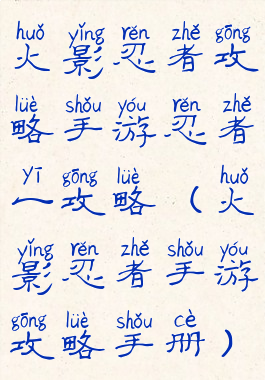 huǒ yǐng rěn zhě gōng
火影忍者攻
lüè shǒu yóu rěn zhě
略手游忍者
yī gōng lüè huǒ
一攻略（火
yǐng rěn zhě shǒu yóu
影忍者手游
gōng lüè shǒu cè
攻略手册）